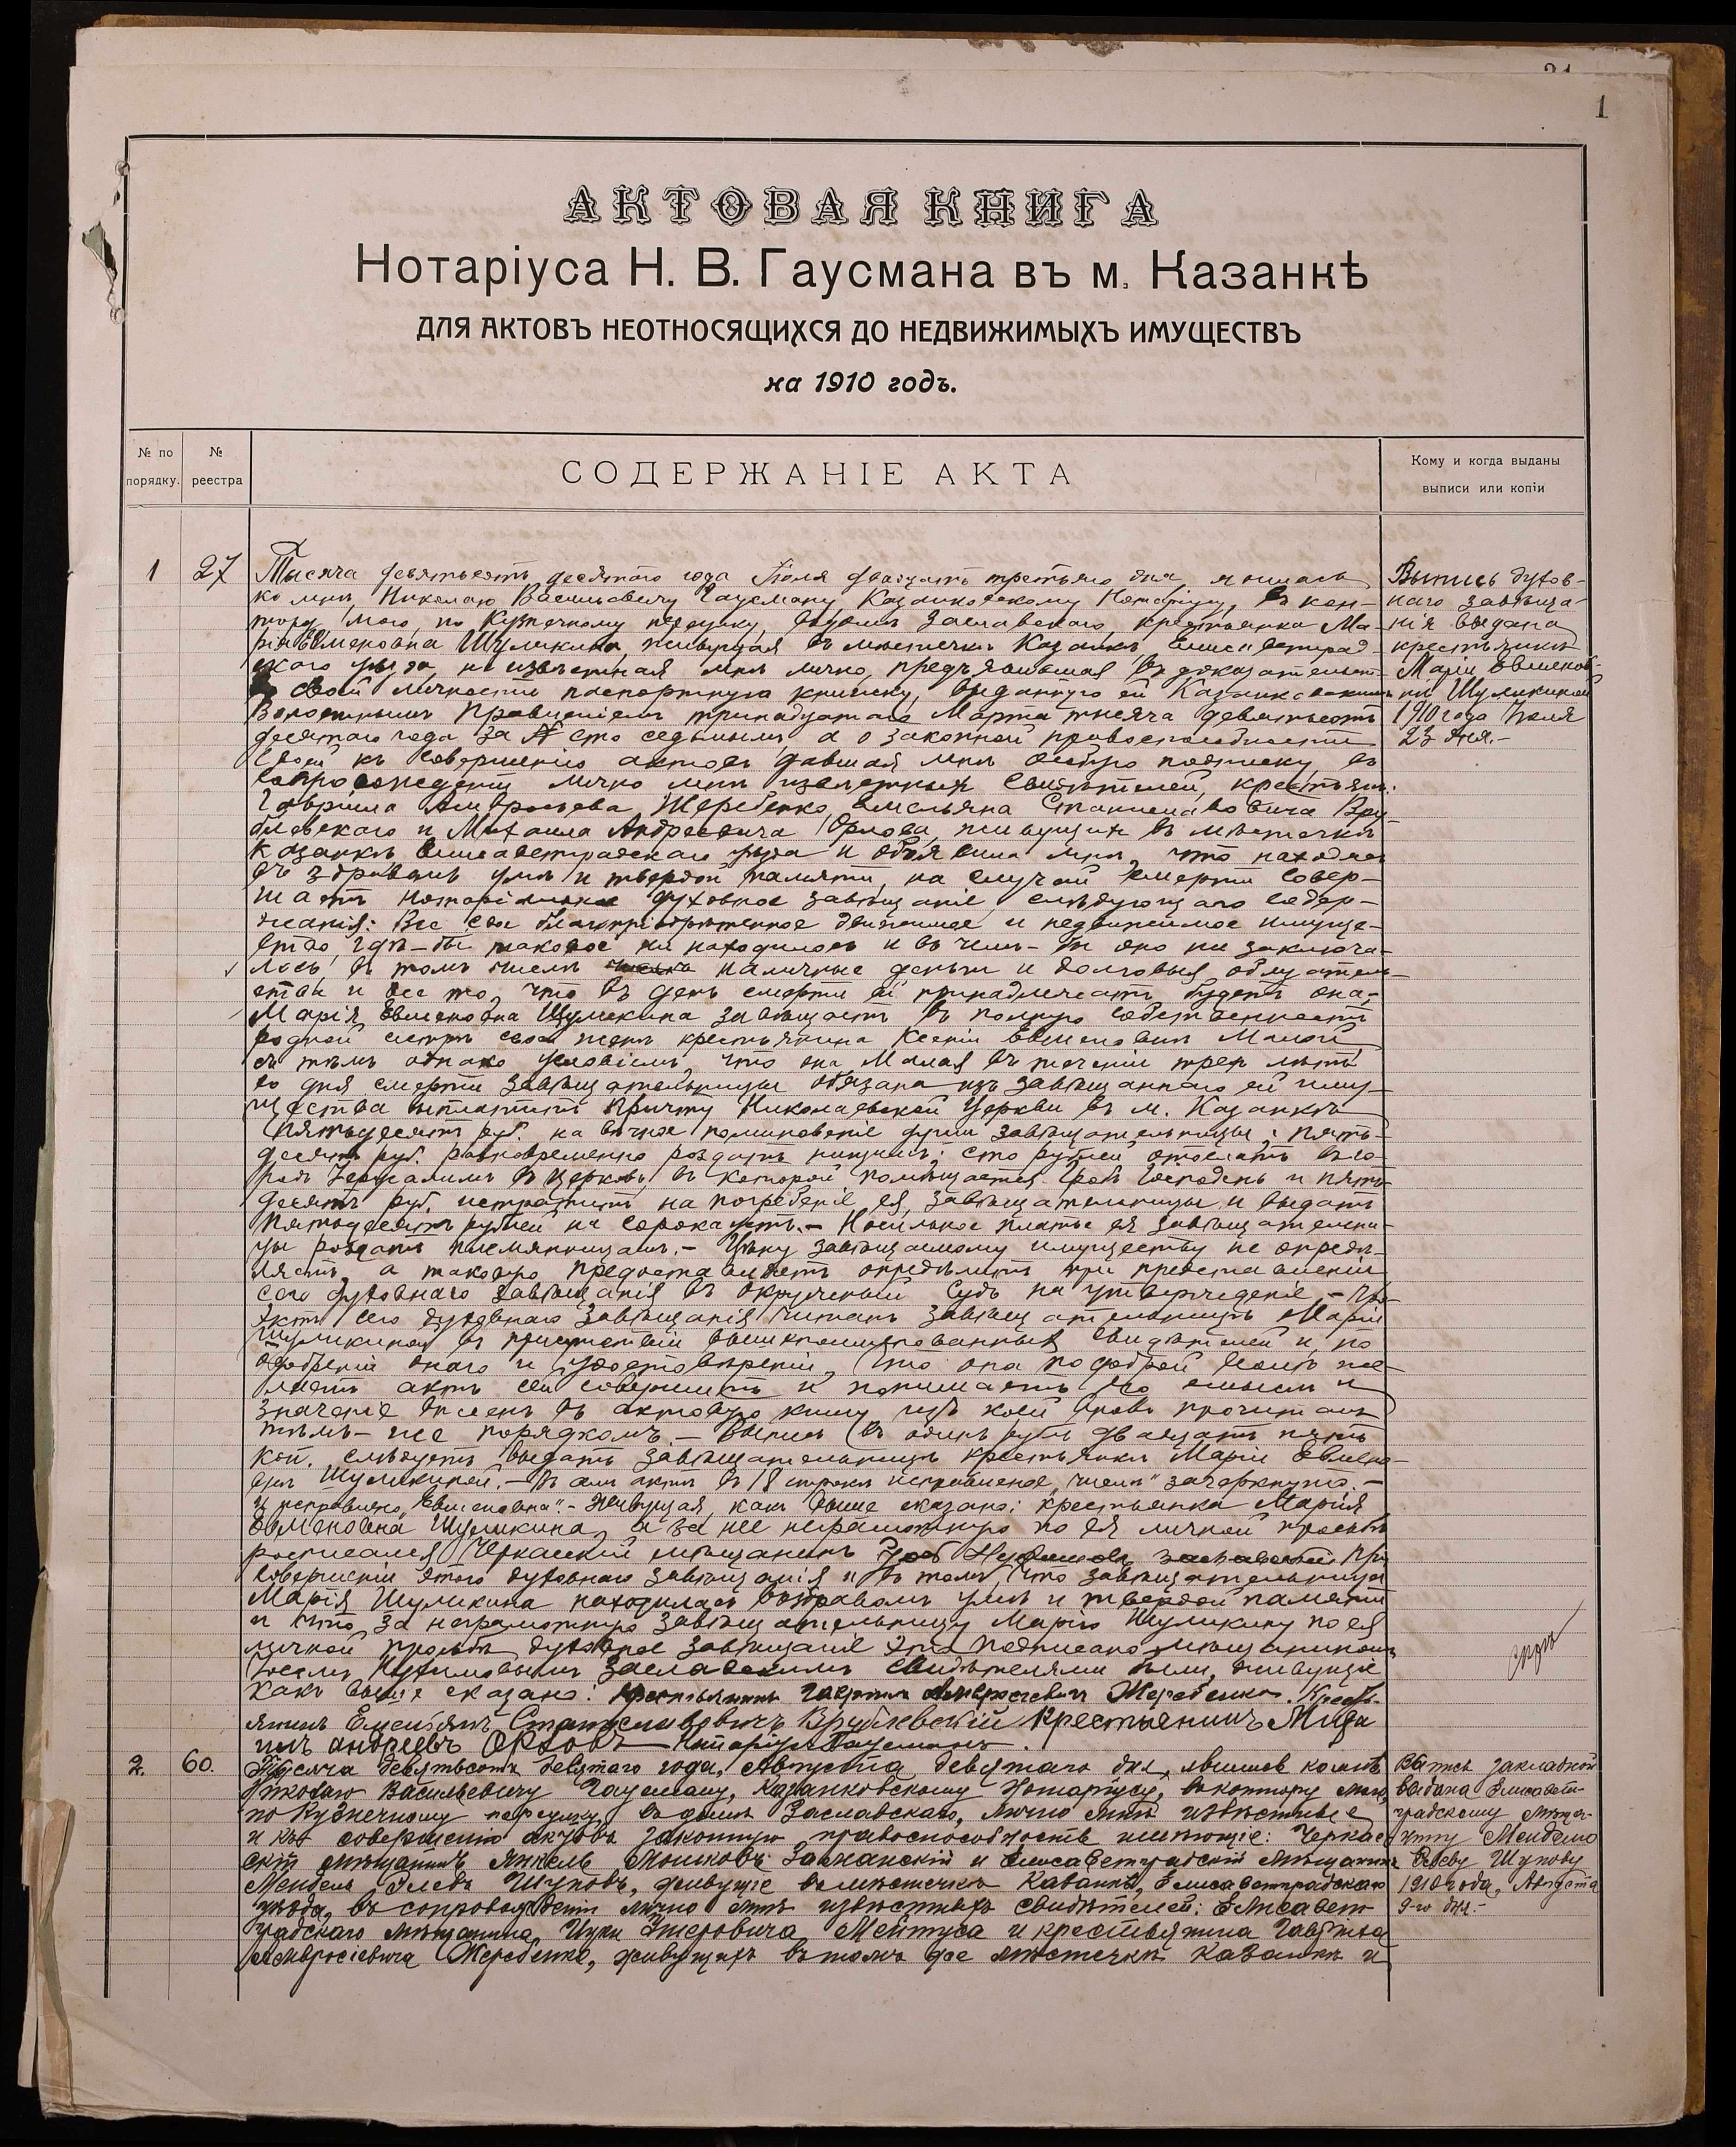 1
АКТОВАЯ КНИГА
Нотаріуса Н. В. Гаусмана въ м. Казанкѣ
ДЛЯ АКТОВЪ НЕОТНОСЯЩИХСЯ ДО НЕДВИЖИМЫХЪ ИМУЩЕСТВЪ
на 1910 годъ.
№ по порядку.
№ реестра
СОДЕРЖАНІЕ АКТА
Кому и когда выданы
выписи или копіи
1
27
Тысяча девятьсотъ десятаго года Іюля двадцать третьяго дня,
ко мнѣ, Николаю Васильевичу Гаусману, Казанковскому Нотаріусу, въ кон-
тору мою, по Кузнечному переулку, въ домѣ Заславскаго, крестьянка Ма-
рія Евменовна Шумкина, живущая въ мѣстечкѣ Казанкѣ Елисаветград-
скаго уѣзда, неизвѣстная мнѣ лично, предъявившая въ доказательст-
во своей личности паспортную книжку, выданную ей Казанковскимъ
Волостнымъ Правленіемъ тринадцатаго Марта тысяча девятьсотъ
десятаго года за № сто седьмымъ, а о законной правоспособности
своей къ совершенію актовъ давшая мнѣ особую подписку, въ
сопровожденіи лично мнѣ извѣстныхъ свидѣтелей, крестьянъ:
Гавріила Амвросьева Жеребенко, Емельяна Станиславовича Вру-
блевскаго и Михаила Андреевича Орлова, живущихъ въ мѣстечкѣ
Казанкѣ Елисаветградскаго уѣзда и объявила мнѣ, что находясь
въ здравомъ умѣ и твердой памяти, на случай смерти совер-
шаетъ нотаріальное духовное завѣщаніе слѣдующаго содер-
жанія: Все свое благопріобрѣтенное движимое и недвижимое имуще-
ство, гдѣ-бы таковое ни находилось и въ чемъ-бы оно ни заключа-
лось, въ томъ числѣ наличные деньги и долговыя обязатель-
ства и все то, что въ день смерти ей принадлежать будетъ она,
Марія Евменовна Шумкина завѣщаетъ въ полную собственность
родной сестрѣ своей женѣ крестьянина Ксеніи Евменовнѣ Малой,
съ тѣмъ однако условіемъ, что она Малая въ теченіи трехъ лѣтъ
со дня смерти завѣщательницы обязана изъ завѣщаннаго ей иму-
щества выплатить Причту Николаевской Церкви въ м. Казанкѣ
пятьдесятъ руб. на вѣчное поминовеніе души завѣщательницы; пять-
десятъ руб. раздать нищимъ; сто рублей отослать въ го-
родъ Іерусалимъ въ церковь, въ которой помѣщается Гробъ Господень и пять-
десятъ руб. истратить на погребеніе ея, завѣщательницы и выдать
пятьдесятъ рублей на сорокоустъ. – Носильное платье ея завѣщательни-
цы раздать племянницамъ. – Цѣну завѣщаемому имуществу не опредѣ-
ляетъ, а таковую предоставляетъ опредѣлить при представленіи
сего духовнаго завѣщанія въ Окружный Судъ на утвержденіе. – Про-
эктъ сего духовнаго завѣщанія читанъ завѣщательницѣ Маріи
въ присутствіи вышепоименованныхъ свидѣтелей и по
одобреніи онаго и удостовѣреніи, что она по доброй волѣ же-
лаетъ актъ сей совершить и понимаетъ его смыслъ и
значеніе внесенъ въ актовую книгу изъ коей вновь прочитанъ
тѣмъ-же порядкомъ. – Выпись въ одинъ рубль двадцать пять
коп. слѣдуетъ выдать завѣщательницѣ крестьянкѣ Маріи Евмено-
внѣ – Въ актѣ въ 18 строкѣ зачеркнуто. –
и исправлено „Евменовна“ – Живущая, какъ выше сказано: крестьянка Марія
Евменовна а за нее неграмотную по ея личной просьбѣ
росписался Черкасскій мѣщанинъ При
совершеніи этого духовнаго завѣщанія и въ томъ, что завѣщательница
Марія находилась въ здравомъ умѣ и твердой памяти
и что за неграмотную завѣщательницу Марію по ея
личной просьбѣ духовное завѣщаніе это подписано мѣщаниномъ
Заславскимъ свидѣтелями были, живущіе
какъ выше сказано: крестьянинъ Гавріилъ Амвросіевичъ Жеребенко. Кресть-
янинъ Емельянъ Станиславовичъ Врублевскій Крестьянинъ Миха
илъ Андреевъ Орловъ Нотаріусъ Гаусманъ.
Выпись духов-
наго завѣща-
нія выдана
крестьянкѣ
Маріи Евменов-
нѣ
1910 года Іюля
23 дня.–
2.
60.
Тысяча девятьсотъ девятаго года, Августа девятаго дня, явились ко мнѣ,
Николаю Васильевичу Гаусману, Казанковскому Нотаріусу, въ контору мою,
по Кузнечному переулку, въ домѣ Заславскаго, лично мнѣ извѣстные
и къ совершенію актовъ законную правоспособность имѣющіе: Черкас-
скій мѣщанинъ Янкель Мошковъ и Елисаветградскій мѣщанинъ
Мендель Шуповъ, живущіе въ мѣстечкѣ Казанкѣ, Елисаветградскаго
уѣзда, въ сопровожденіи лично мнѣ извѣстныхъ свидѣтелей: Елисавет-
градскаго мѣщанина и крестьянина Гавріила
Амвросіевича Жеребенко, живущихъ въ томъ же мѣстечкѣ Казанкѣ и
Выпись закладной
выдана Елисавет-
градскому мѣща-
нину Менделю
Шупову
1910 года, Августа
9-го дня.–